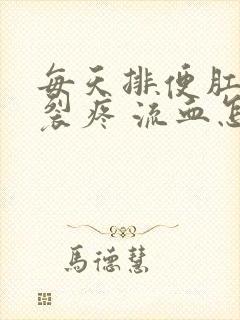 每天排便肛
裂疼 流血怎
馬德慧